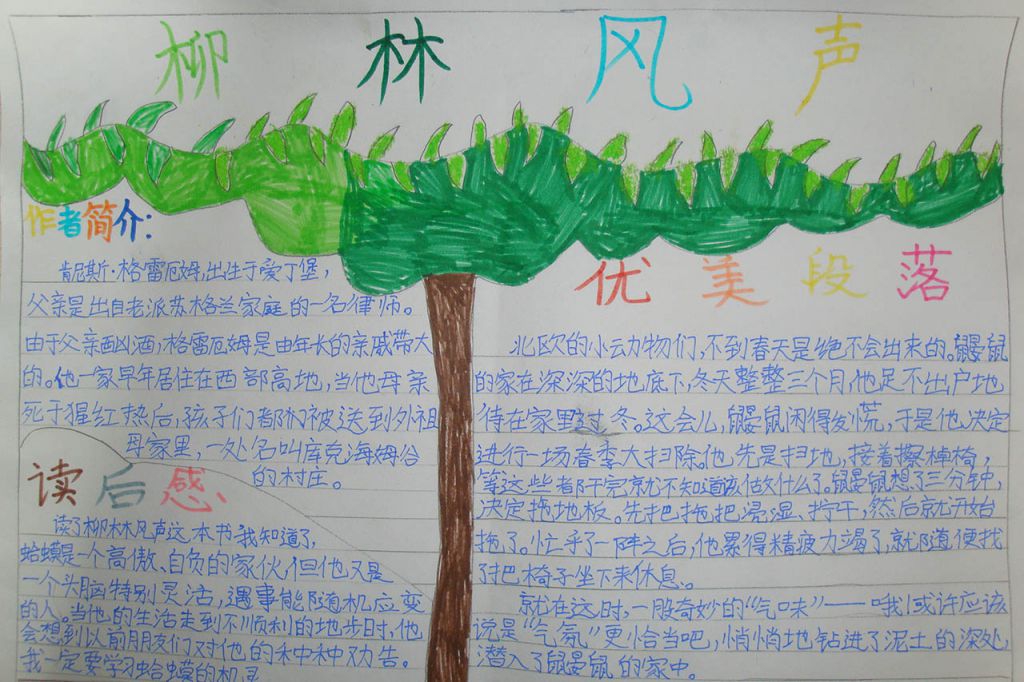 柳林风声
作者简介:
肯尼斯·格雷厄姆,出生于爱丁堡,
父亲是出自老派苏格兰家庭的一名律师。
由于父亲酗酒,格雷厄姆是由年长的亲戚带大
的。他一家早年居住在西部高地,当他母亲
死于猩红热后,孩子们都们被送到外祖
母家里,一处名叫库克海姆谷
的村庄。
读后感
读了柳林风声这本书我知道了,
蛤蟆是一个高傲、自负的家伙,但他又是
一个头脑特别灵活,遇事能随机应变
的人。当他的生活走到不顺利的地步时,他
会想到以前朋友们对他的种种劝告。
我一定要学习蛤蟆的机
优美段落
北欧的小动物们,不到春天是绝不会出来的。鼹鼠
的家在深深的地底下,冬天整整三个月,他足不出户地
待在家里过冬。这会儿,鼹鼠闲得发慌,于是他决定
进行一场春季大扫除。他先是扫地,接着擦棹椅,
等这些都干完就不知道该做什么了。鼹鼠想了三分钟,
决定拖地板。先把拖把浸湿、拧干,然后就开始
拖了。忙乎了一阵之后,他累得精疲力竭了,就随便找
了把椅子坐下来休息。
就在这时,一股奇妙的“气味”——哦!或许应该
说是“气氛”更恰当吧,悄悄地钻进了泥土的深处,
潜入了鼹鼠的家中。